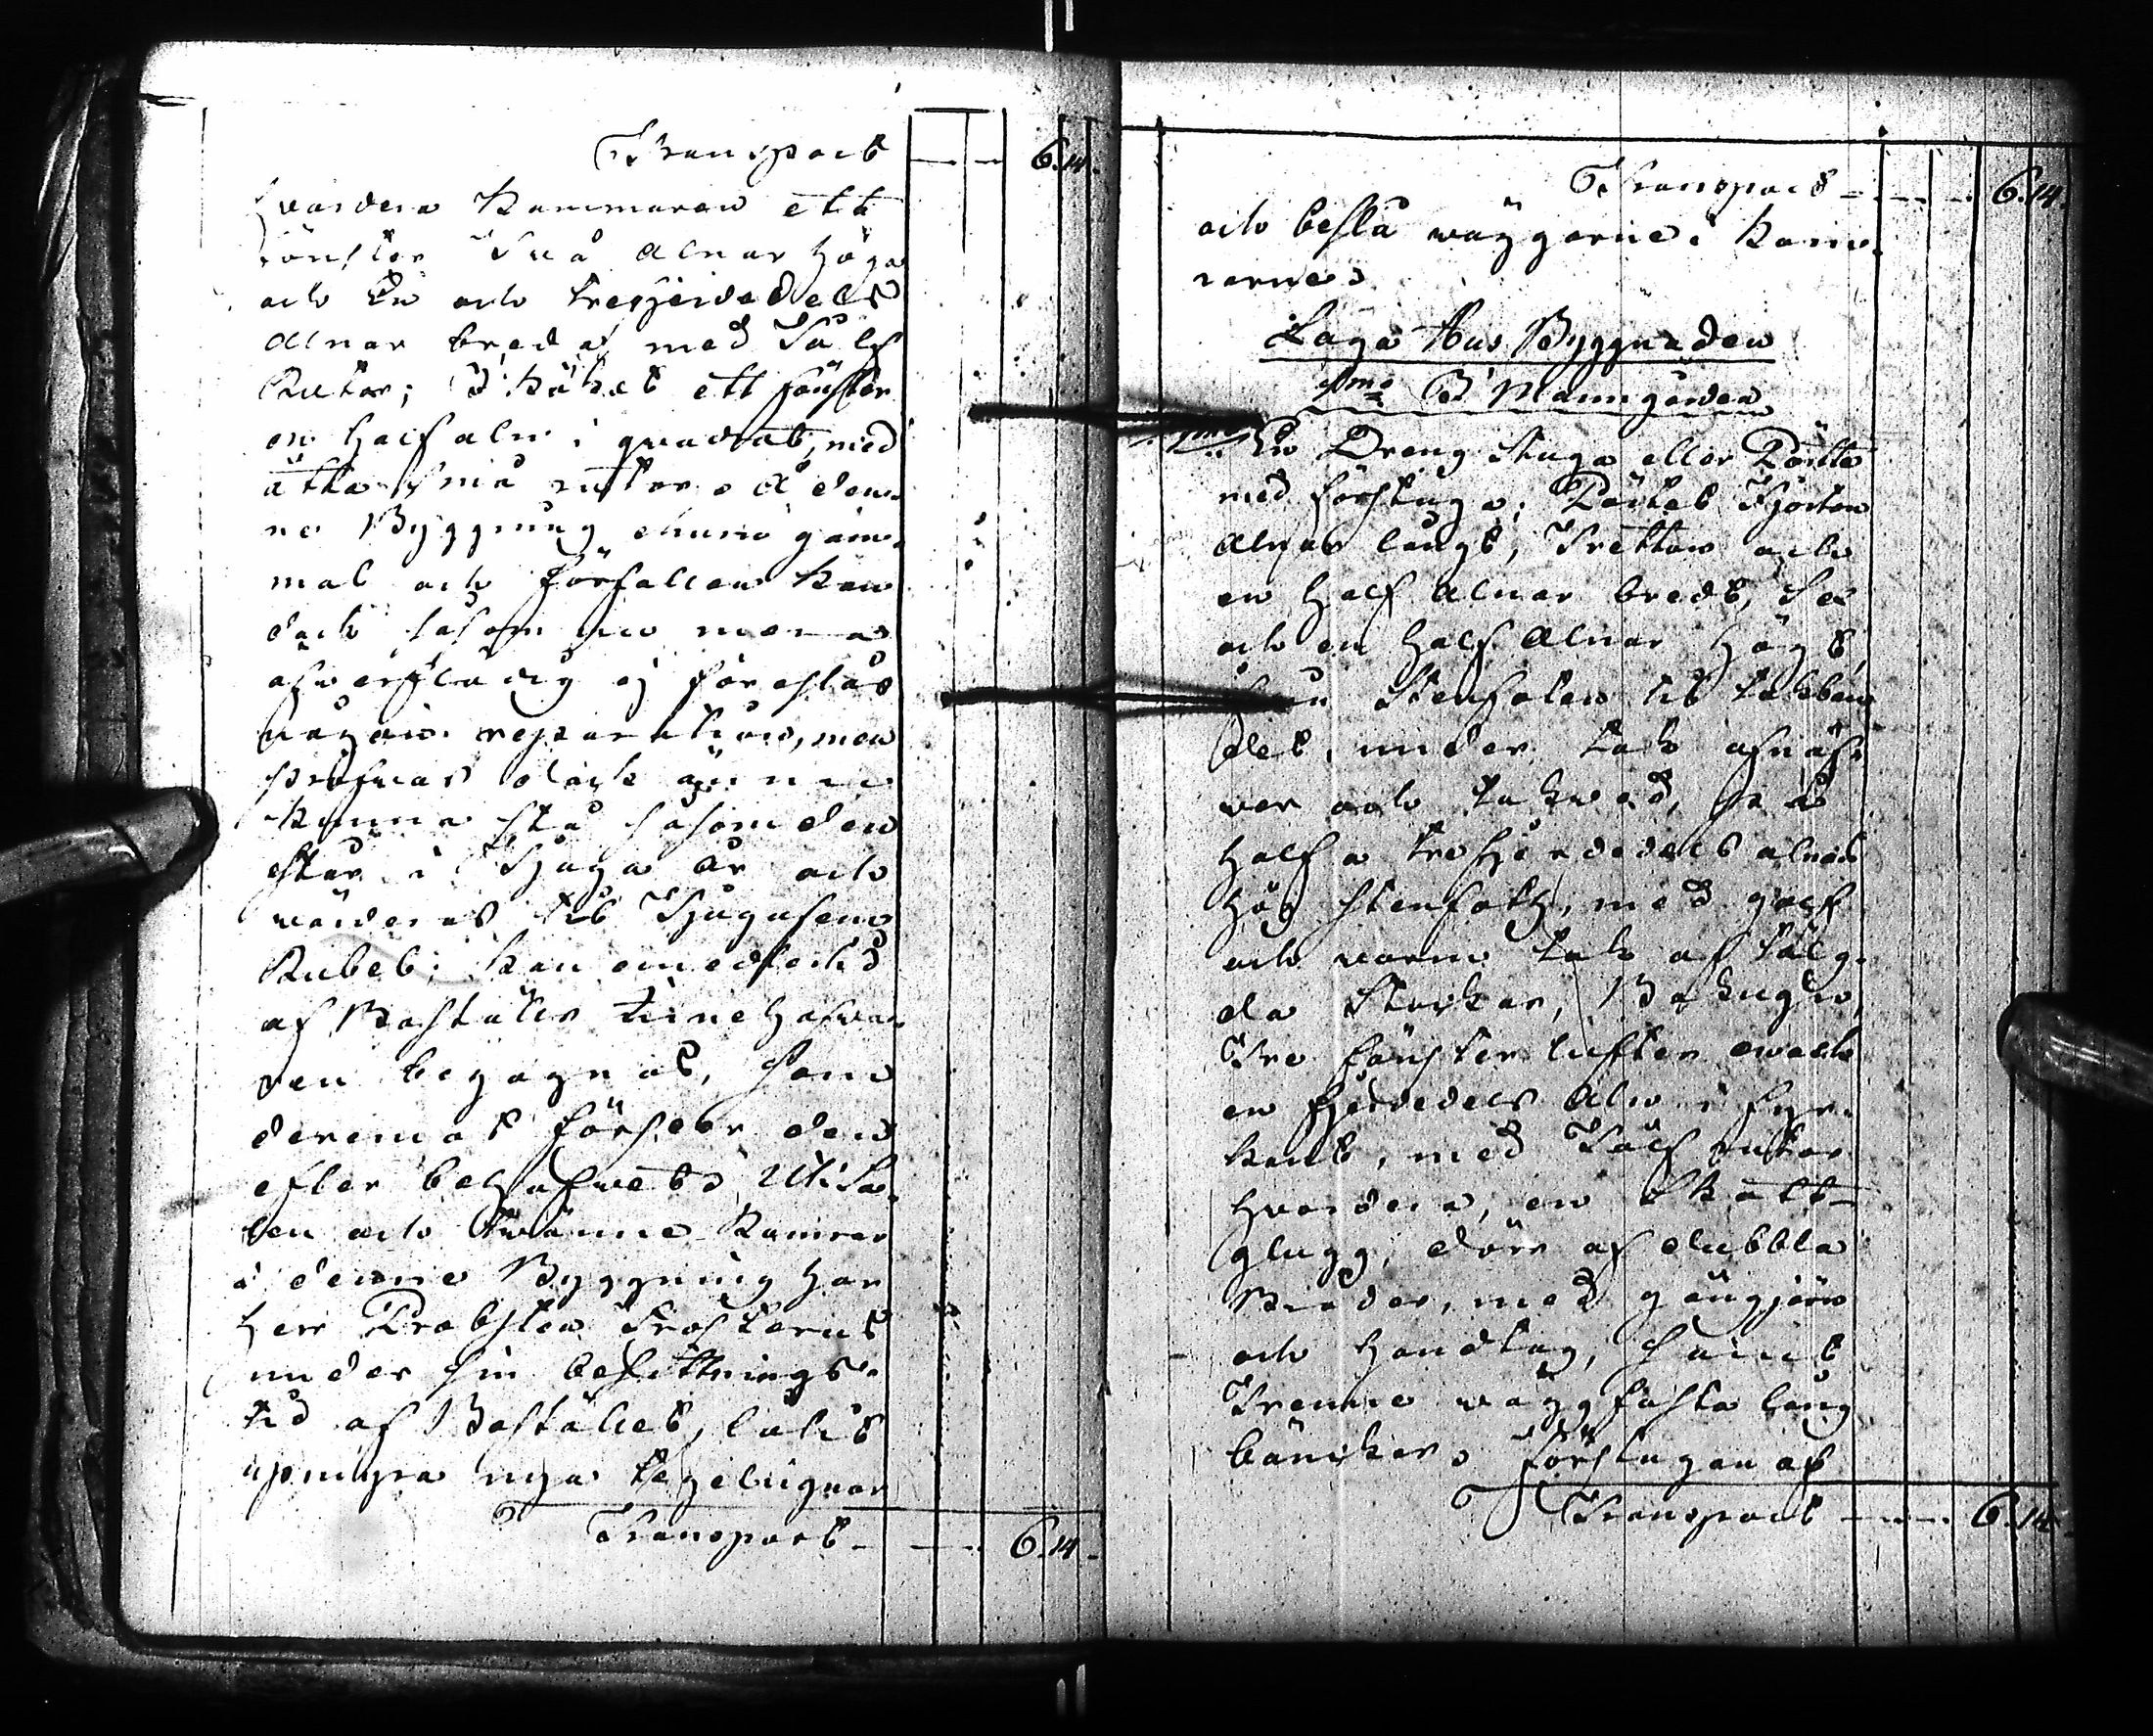 Transport — — 6.14.
hvardera Kammaren ett
fönster Två alnar höga
och En och trefjerdedels
alnar breda, med Tolf
Rutor; I Köket ett fönster
en half aln i qvadrat, med
åtta små rutor. Å den-
ne Byggning ehuru gam-
mal och förfallen kan
dock såsom
öfwerflödig ej föreslås
någon reparation, men
pröfwas dock ännu
kunna stå såsom den
står i Tjugo år och
wärderas til Tjugufem
Rubel: kan emedlertid
af Boställs Innehafwa-
ren begagnas, som
deremot förser den
efter behofwet. Uti Sa-
len och twänne Kamrar
i denne Byggning har
Herr Probsten Frosterus
under sin besittnings-
tid af Bostället, låtit
upmura nya tegelugnar
Transport — — 6.14.
Transport — — 6.14.
och beslå wäggarne i Kam-
rarne.
Laga Hus Byggnaden
1mo På Manngården
1mo En Dreng Stuga eller Pörtte
med förstuga; Pörtet Fjorton
alnar långt, Tretton och
en half alnar bredt, Sex
och en half alnar högt,
från Stenfoten til takban-
det, under tak
wer och takwed, på
half a trefjerdedels alnar
hög Stenfoth, med golf
och warm tak af tälg-
da Stockar, Bakugn,
Tre fönster lufter en och
en fjerdedels aln i fyr-
kant, med Tolf rutor
hvardera, en Skott-
glugg, dörr af dubbla
Bräder, med gångjern
och handtag, samt
Trenne wäggfasta lång
bänckar. Förstugan af
Transport — — 6.14.